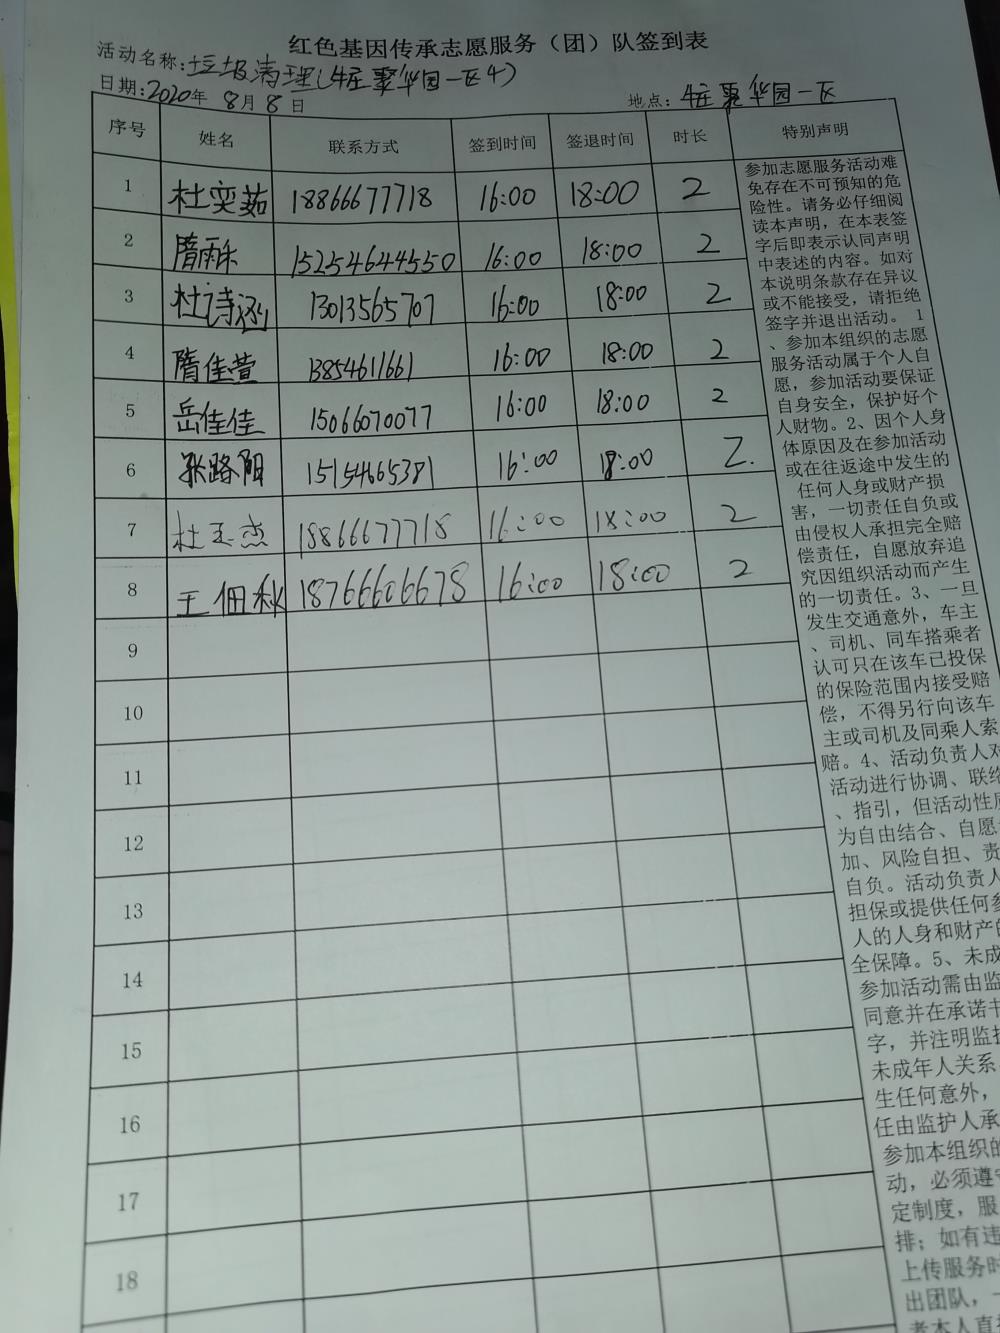 红色基因传承志愿服务（团）队签到表
活动名称:垃圾清理(牛庄聚华园一区4)
日期:2020年8月8日
地点:牛庄聚华园一区
序号 姓名 联系方式 签到时间 签退时间 时长 特别声明
1 杜奕茹 18866677718 16:00 18:00 2
2 隋雨乐 15254644550 16:00 18:00 2
3 杜诗涵 13013565707 16:00 18:00 2
4 隋佳萱 13854611661 16:00 18:00 2
5 岳佳佳 15066070077 16:00 18:00 2
6 张路阳 15154665381 16:00 18:00 2.
7 杜玉杰 18866677718 16:00 18:00 2
8 王佃秋 18766606678 16:00 18:00 2
9
10
11
12
13
14
15
16
17
18
参加志愿服务活动难
免存在不可预知的危
险性。请务必仔细阅
读本声明，在本表签
字后即表示认同声明
中表述的内容。如对
本说明条款存在异议
或不能接受，请拒绝
签字并退出活动。 1
、参加本组织的志愿
服务活动属于个人自
愿，参加活动要保证
自身安全，保护好个
人财物。2、因个人身
体原因及在参加活动
或在往返途中发生的
任何人身或财产损
害，一切责任自负或
由侵权人承担完全赔
偿责任，自愿放弃追
究因组织活动而产生
的一切责任。3、一旦
发生交通意外，车主
、司机、同车搭乘者
认可只在该车已投保
的保险范围内接受赔
偿，不得另行向该车
主或司机及同乘人索
赔。4、活动负责人对
活动进行协调、联络
、指引，但活动性质
为自由结合、自愿
加、风险自担、责
自负。活动负责人
担保或提供任何参
人的人身和财产的
全保障。5、未成
参加活动需由监
同意并在承诺书
字，并注明监护
未成年人关系
生任何意外，
任由监护人承
参加本组织的
动，必须遵守
定制度，服
排；如有违
上传服务时
出团队，一
者本人直接